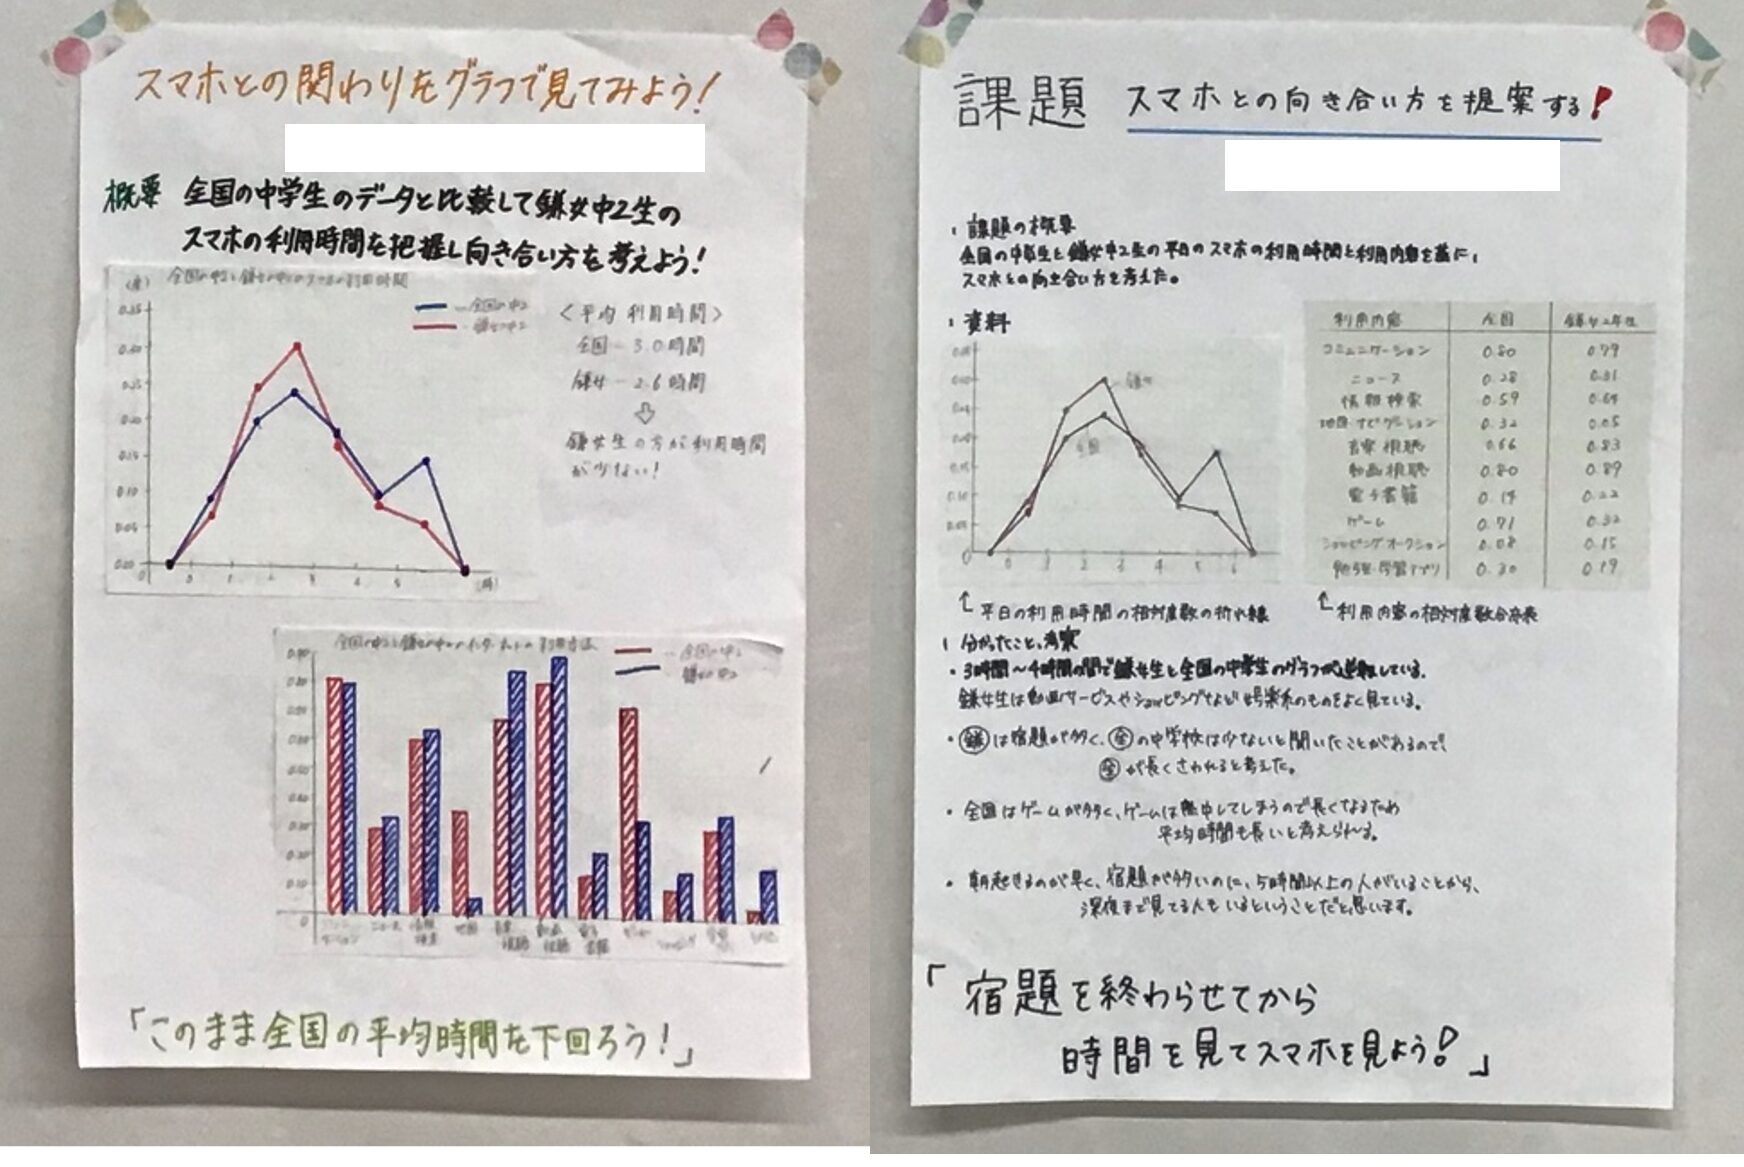 スマホとの関わりをグラフで見てみよう!
概要 全国の中学生のデータと比較して鎌女中2生の
スマホの利用時間を把握し向き合い方を考えよう!
全国の中2
鎌女中2
<平均利用時間>
全国－3.0時間
鎌女－2.6時間
鎌女生の方が利用時間
が少ない!
「このまま全国の平均時間を下回ろう!」
課題 スマホとの向き合い方を提案する!
課題の概要
全国の中学生と鎌女中2生の平日のスマホの利用時間と利用内容を基に,
スマホとの向き合い方を考えた。
資料
鎌女
全国
0 1 2 3 4 5 6
利用内容 全国 鎌女2年生
コミュニケーション 0.80 0.79
ニュース 0.28 0.31
情報検索 0.59 0.64
地図・ナビゲーション 0.32 0.05
音楽視聴 0.66 0.83
動画視聴 0.80 0.89
電子書籍 0.14 0.22
ゲーム 0.71 0.32
ショッピング オークション 0.08 0.15
勉強・学習アプリ 0.30 0.19
平日の利用時間の相対度数の折れ線
利用内容の相対度数分布表
分かったこと、考察
・3時間～4時間の間で鎌女生と全国の中学生のグラフが逆転している.
鎌女生は動画サービスやショッピングなど娯楽系のものをよく見ている。
・鎌は宿題が多く、全の中学校は少ないと聞いたことがあるので,
全が長くさわれると考えた。
・全国はゲームが多く、ゲームは熱中してしまうので長くなるため
平均時間も長いと考えられる。
・朝起きるのが早く、宿題が多いのに、5時間以上の人がいることから、
深夜まで見てる人もいるということだと思います。
「宿題を終わらせてから
時間を見てスマホを見よう!」